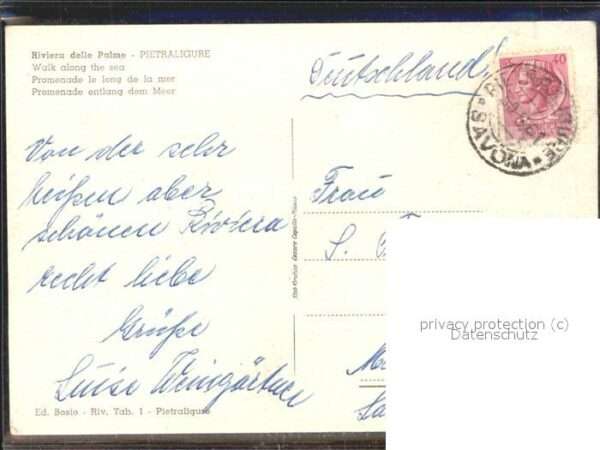 Riviera delle Palme - PIETRALIGURE
Walk along the sea
Promenade le long de la mer
Promenade entlang dem Meer
Deutschland!
40
SAVONA
Von der sehr
heißen aber
schönen Riviera
recht liebe
Grüße
Luise Weingärtner
Frau
S.
privacy protection (c)
Datenschutz
Ed. Bosio - Riv. Tab. 1 - Pietraligure